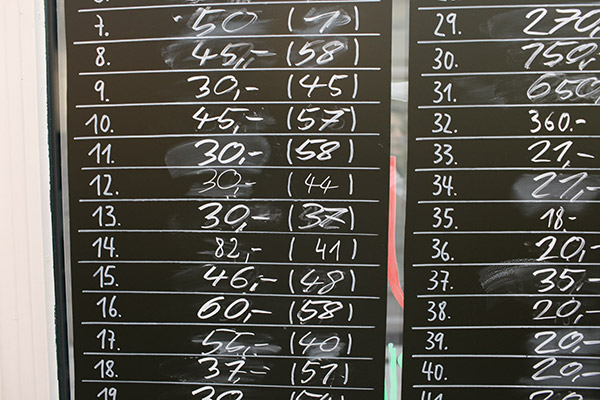 7. 50 (7)
8. 45,- (58)
9. 30,- (45)
10. 45,- (57)
11. 30,- (58)
12. 30,- (44)
13. 30,- (37)
14. 82,- (41)
15. 46,- (48)
16. 60,- (58)
17. (40)
18. 37,- (57)
19
29. 270
30. 750,-
31. 650,
32. 360.-
33. 21,-
34. 27,-
35. 18.-
36. 20,-
37. 35,-
38. 20,-
39. 20,-
40. 20,-